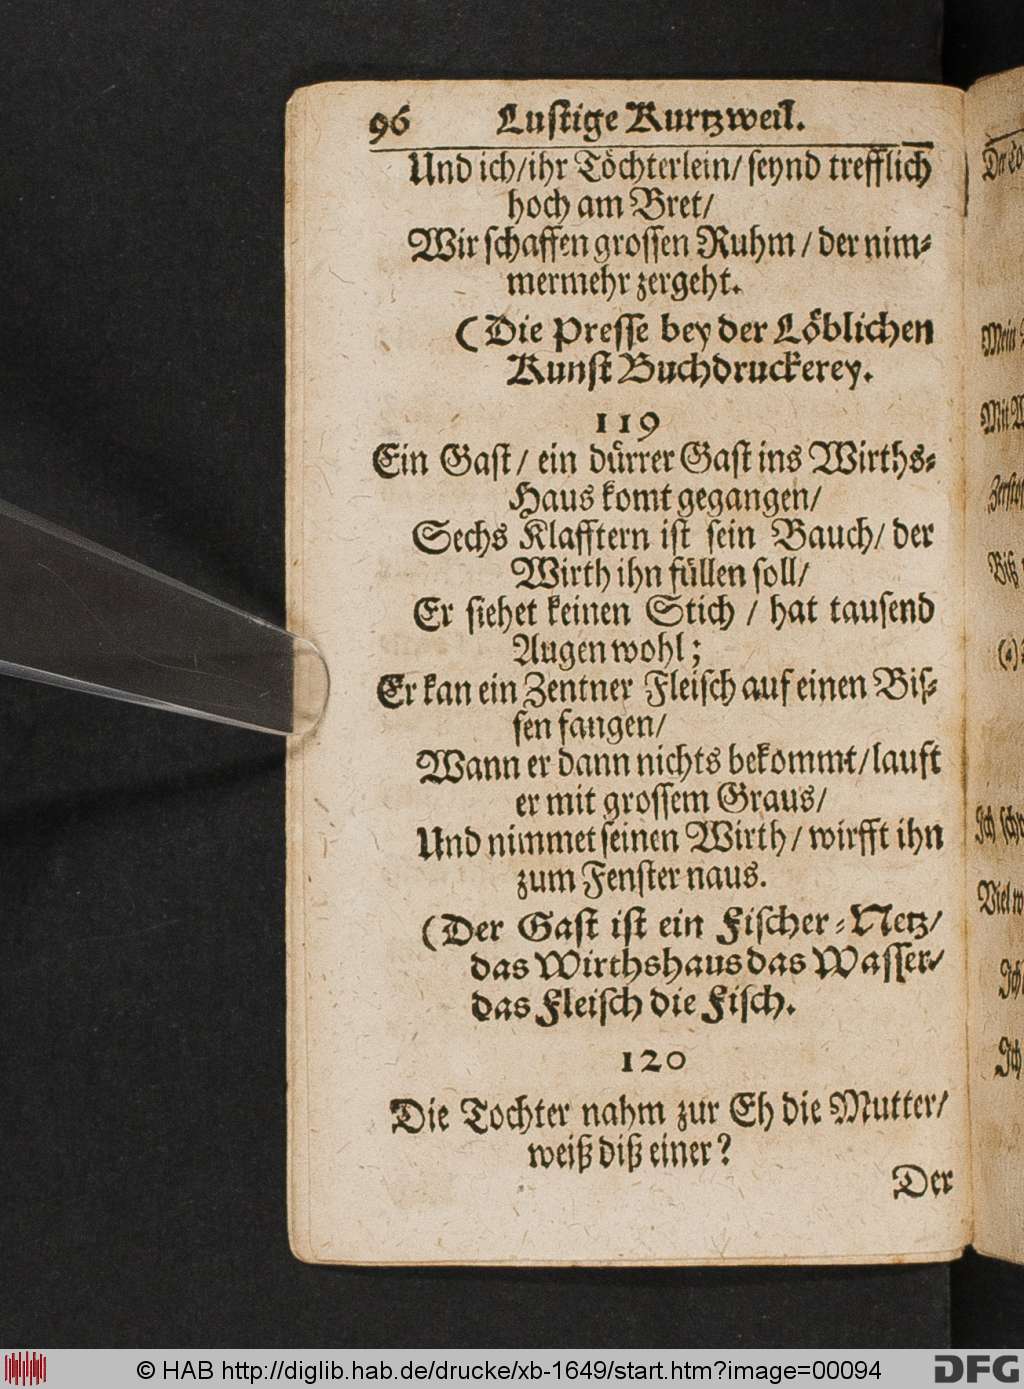 96 Lustige Kurtzweil.
Und ich/ihr Töchterlein/ seynd trefflich
hoch am Bret/
Wir schaffen grossen Ruhm / der nim-
mermehr zergeht.
(Die Presse bey der Löblichen
Kunst Buchdruckerey.
119
Ein Gast / ein dürrer Gast ins Wirths-
Haus komt gegangen/
Sechs Klafftern ist sein Bauch/ der
Wirth ihn füllen soll/
Er siehet keinen Stich / hat tausend
Augen wohl;
Er kan ein Zentner Fleisch auf einen Bis-
sen fangen/
Wann er dann nichts bekommt/lauft
er mit grossem Graus/
Und nimmet seinen Wirth/ wirfft ihn
zum Fenster naus.
(Der Gast ist ein Fischer-Netz/
das Wirthshaus das Wasser/
das Fleisch die Fisch.
120
Die Tochter nahm zur Eh die Mutter/
weiß diß einer?
Der
Mit
Biß
Ich
Viel
Ich
Ich
© HAB http://diglib.hab.de/drucke/xb-1649/start.htm?image=00094
DFG